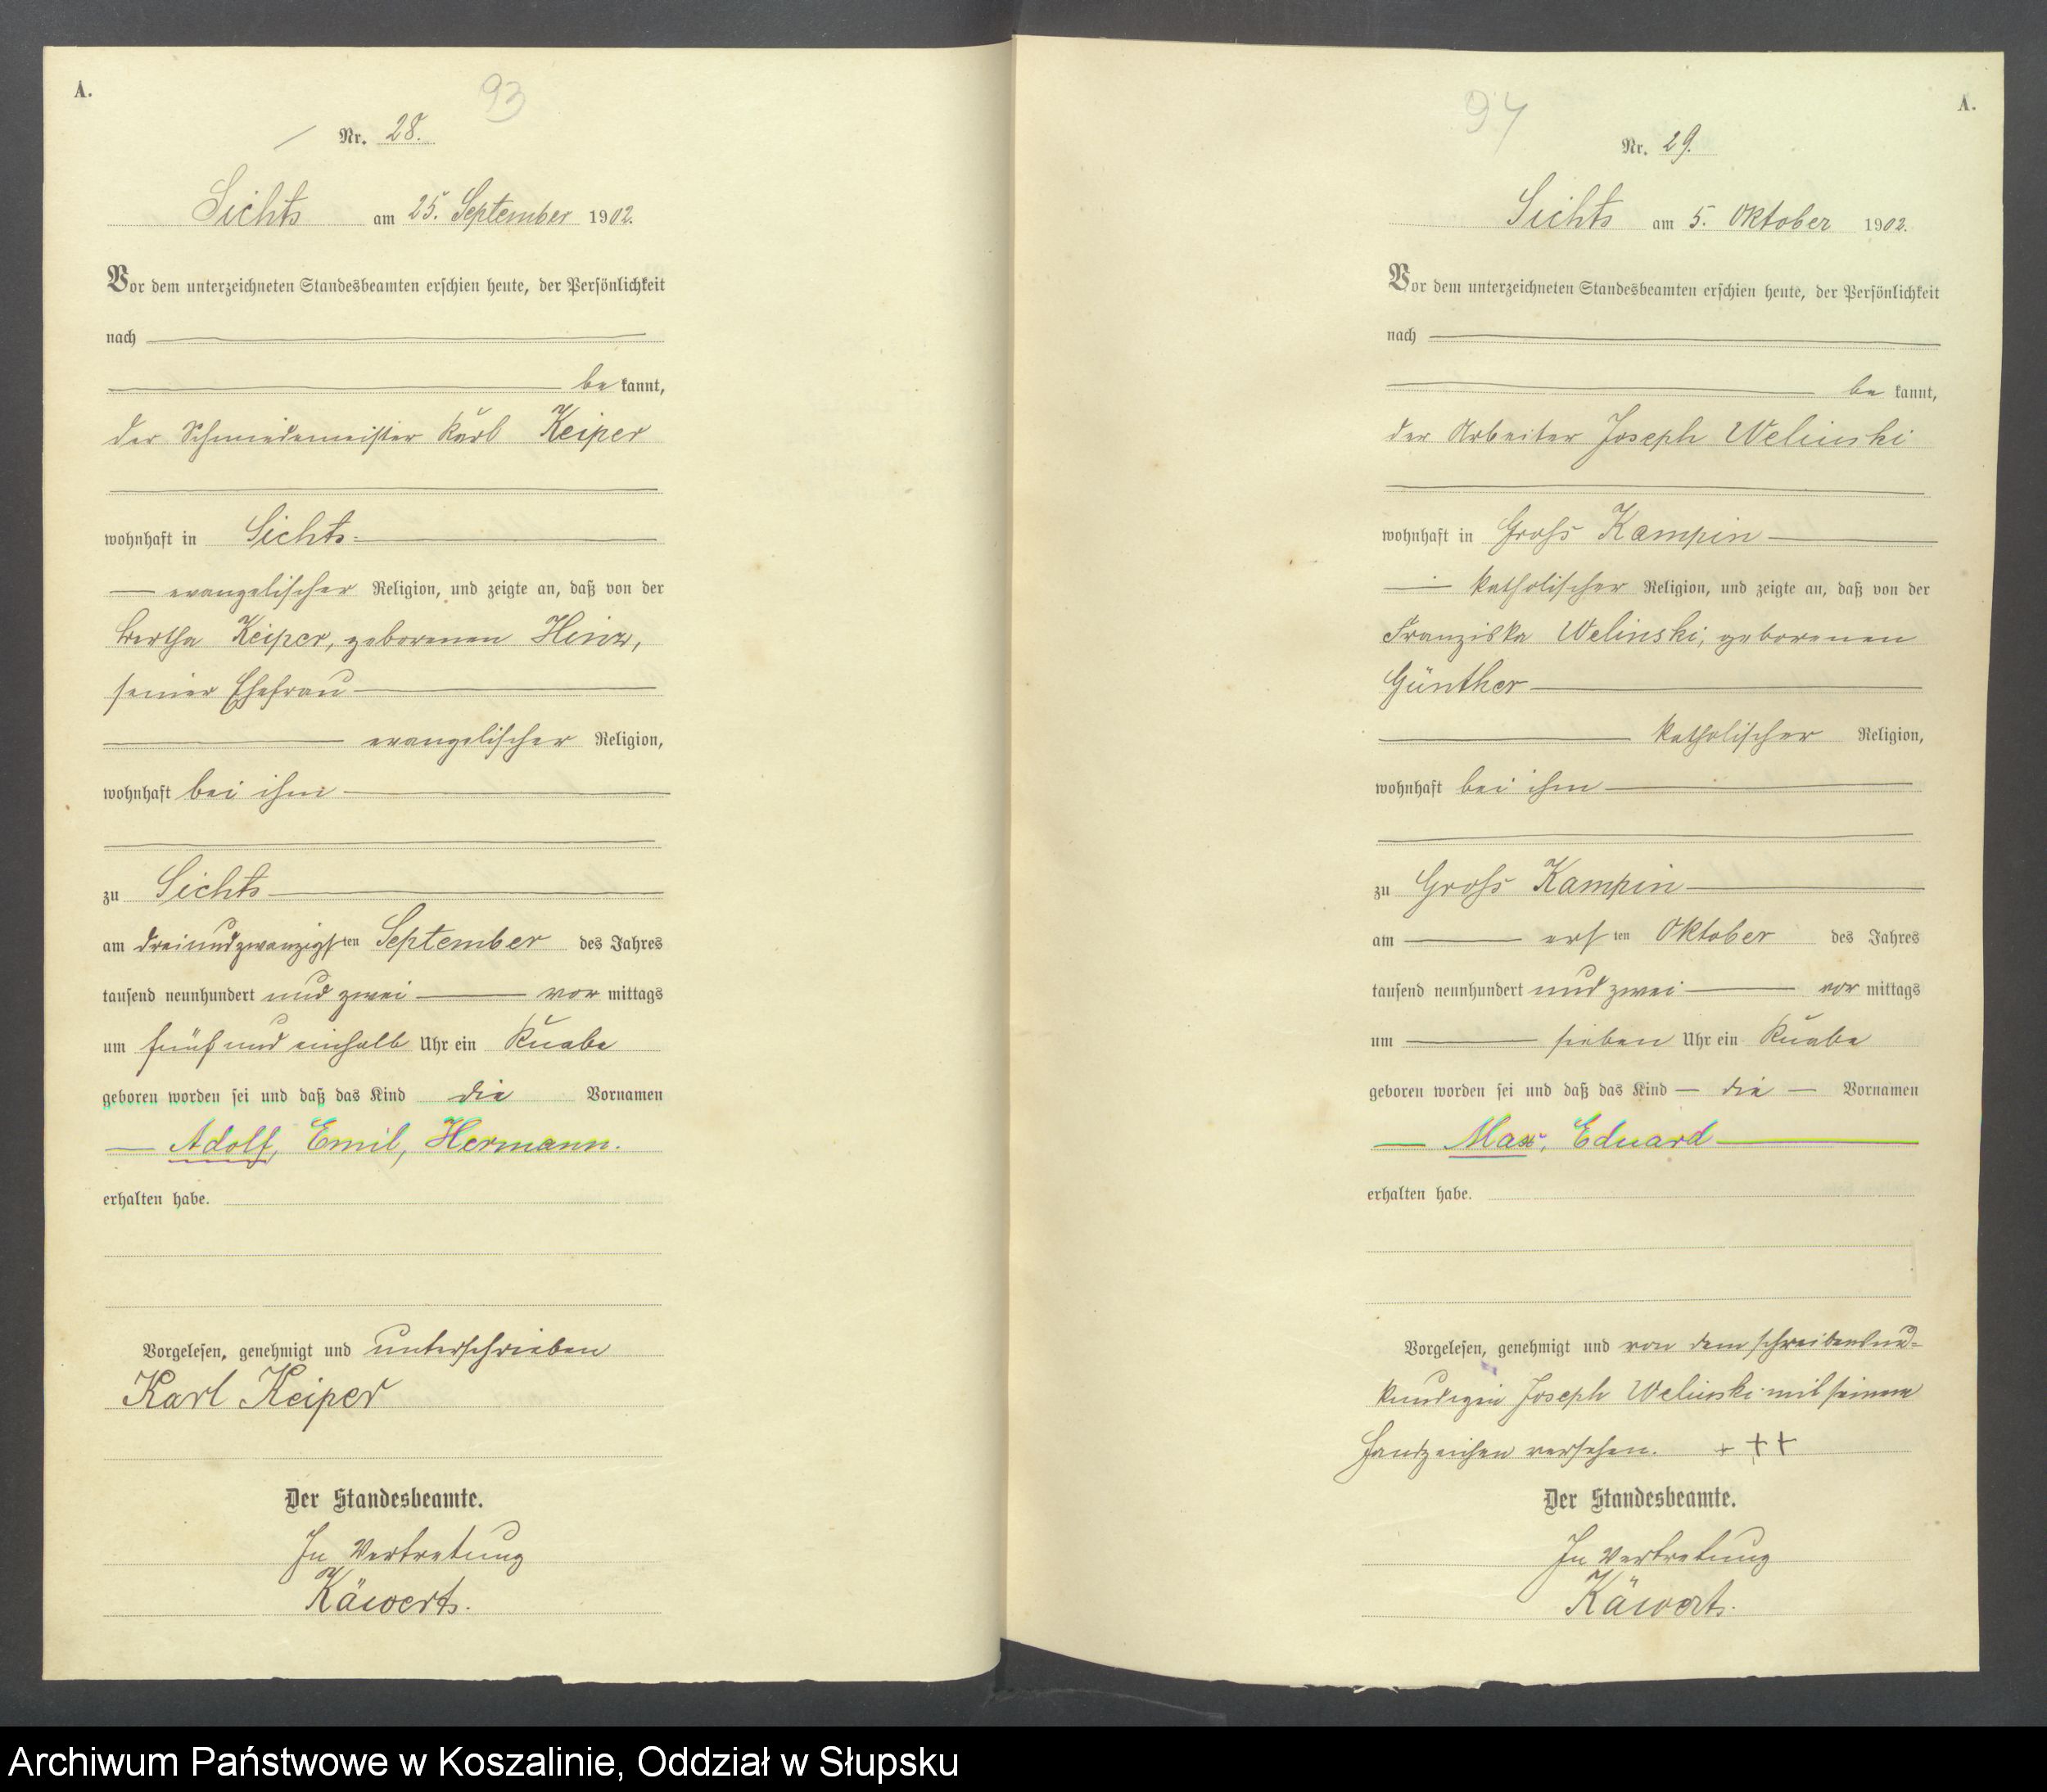 A.
93
Nr. 28.
Sichts am 25. September 1902.
Vor dem unterzeichneten Standesbeamten erschien heute, der Persönlichkeit
nach
be kannt,
der Schmiedemeister Karl Keiper
wohnhaft in Sichts
evangelischer Religion, und zeigte an, daß von der
Bertha Keiper, geborenen Hinz,
seiner Ehefrau
evangelischer Religion,
wohnhaft bei ihm
zu Sichts
am dreiundzwanzigsten September des Jahres
tausend neunhundert und zwei vor mittags
um fünf und einhalb Uhr ein Knabe
geboren worden sei und daß das Kind die Vornamen
Adolf, Emil, Hermann.
erhalten habe.
Vorgelesen, genehmigt und unterschrieben
Karl Keiper
Der Standesbeamte.
In Vertretung
Käwerts.
A.
94
Nr. 29.
Sichts am 5. Oktober 1902.
Vor dem unterzeichneten Standesbeamten erschien heute, der Persönlichkeit
nach
be kannt,
der Arbeiter Joseph Welinski
wohnhaft in Groß Kampin
katholischer Religion, und zeigte an, daß von der
Franziska Welinski, geborenen
Günther
katholischer Religion,
wohnhaft bei ihm
zu Groß Kampin
am ersten Oktober des Jahres
tausend neunhundert und zwei vor mittags
um sieben Uhr ein Knabe
geboren worden sei und daß das Kind die Vornamen
Max, Eduard
erhalten habe.
Vorgelesen, genehmigt und von dem schreibensun-
kundigen Joseph Welinski mit seinem
Handzeichen versehen. + + +
Der Standesbeamte.
In Vertretung
Käwerts.
Archiwum Państwowe w Koszalinie, Oddział w Słupsku